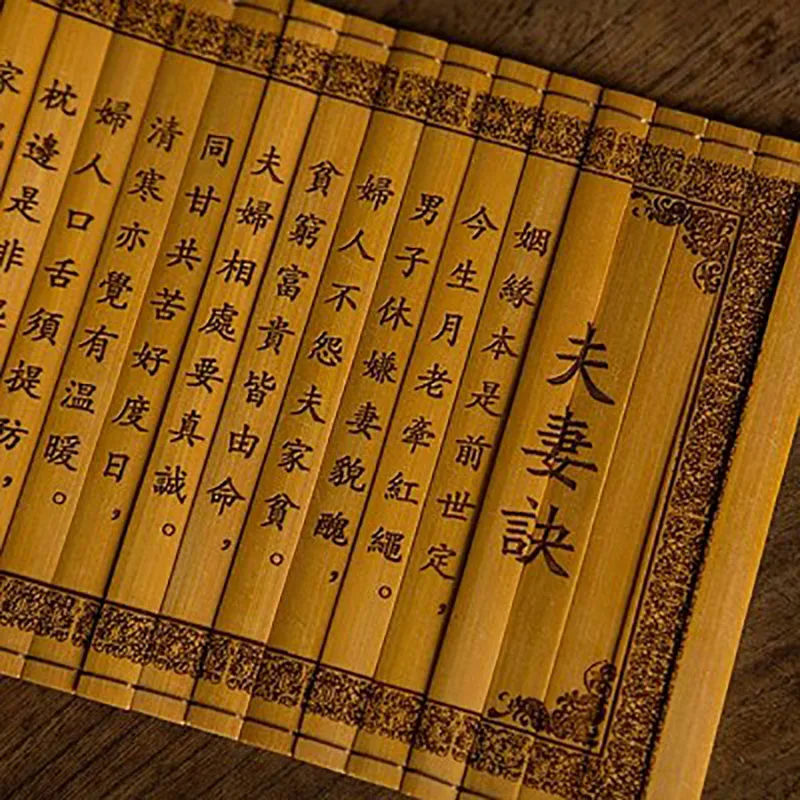 夫妻訣
姻緣本是前世定，
今生月老牽紅繩。
男子休嫌妻貌醜，
婦人不怨夫家貧。
貧窮富貴皆由命，
夫婦相處要真誠。
同甘共苦好度日，
清寒亦覺有溫暖。
婦人口舌須提防，
枕邊是非
家